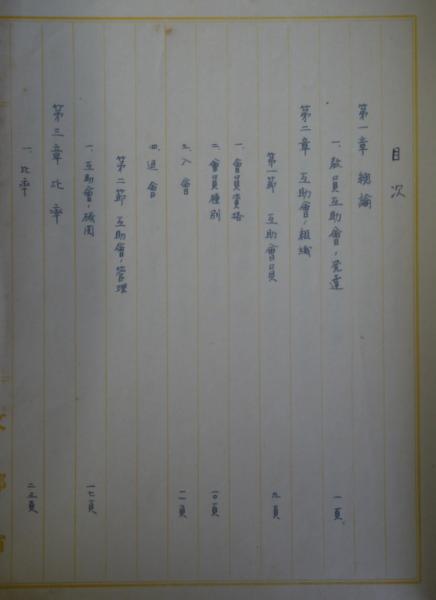 目次
第一章 總論
一、敎員互助會ノ発達 一頁
第二章 互助會ノ組織
第一節 互助會員 九頁
一、會員資格
二、會員種別 一〇頁
三、入會 一一頁
四、退會
第二節 互助會ノ管理
一、互助會ノ機関 一七頁
第三章 比率
一、比率 二三頁